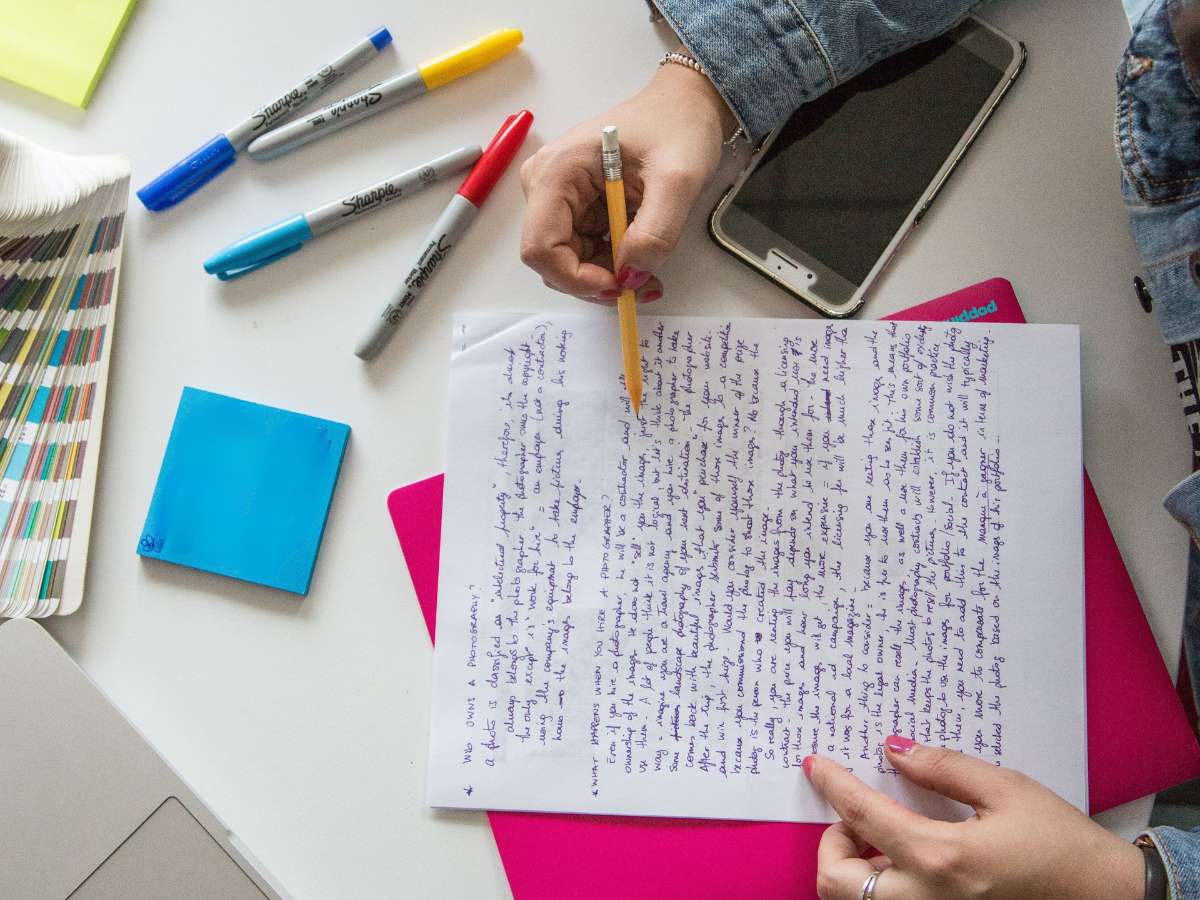 Sharpie
Sharpie
Sharpie
Sharpie
poppin
* WHO OWNS A PHOTOGRAPHY?
a photo is classified as "intellectual property", therefore, it almost
always belongs to the photographer. The photographer owns the copyright
the only except° is "work for hire" = an employee (not a contractor),
using the company's equipment to take pictures during his working
hours the images belong to the employer.
* WHAT HAPPENS WHEN YOU HIRE A PHOTOGRAPHER?
Even if you hire a photographer, he will be a contractor and will
ownership of the image. He does not "sell" you the image, just the right to
use them. A lot of people think it is not logical but let's think about it another
way = imagine you are a travel agency and you hire a photographer to take
some landscape photography of your next destination. The photographer
comes back with beautiful images that you "purchase" for your website.
After the trip, the photographer submits some of those images to a competition
and win first prize. Would you consider yourself the winner of the prize
because you commissioned the photog to shoot those images? No because the
photog is the person who created the image.
So really, you are renting the images from the photog through a licensing
contract. The price you will pay depends on what you intended use is
for those images and how long you intend to use them for. The more
exposure the image will get, the more expensive = if you need image
for a national ad campaign, the licensing fee will be much higher tha
if it was for a local magazine.
Another thing to consider = because you are renting those images and the
photog is the legal owner, he is free to use them as he sees fit. This means that
photographer can resell the images as well as use them for his own portfolio
social media. Most photography contracts will establish some sort of exclusiv
that keeps the photog to resell the pictures. However, it is common practice
photog to use the images for portfolio/social. If you do not wish the photog
them, you need to add this to the contract and it will typically
you more to compensate for the "manque à gagner" in terms of marketing.
selected the photog based on the images of his portfolio...